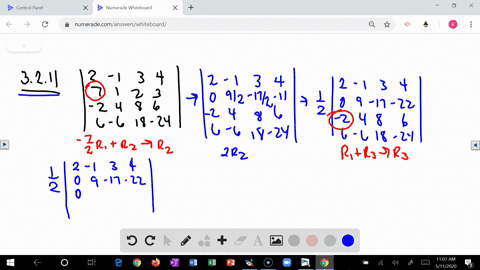 Control Panel
Numerade Whiteboard
numerade.com/answers/whiteboard/
3.2.11
2 -1 3 4
7 1 2 3
-2 4 8 6
6 -6 18 -24
-7/2 R1 + R2 → R2
→
2 -1 3 4
0 9/2 -17/2 -11
-2 4 8 6
6 -6 18 -24
2R2
→ 1/2
2 -1 3 4
0 9 -17 -22
-2 4 8 6
6 -6 18 -24
R1 + R3 → R3
1/2
2 -1 3 4
0 9 -17 -22
0
A
11:07 AM
5/11/2020